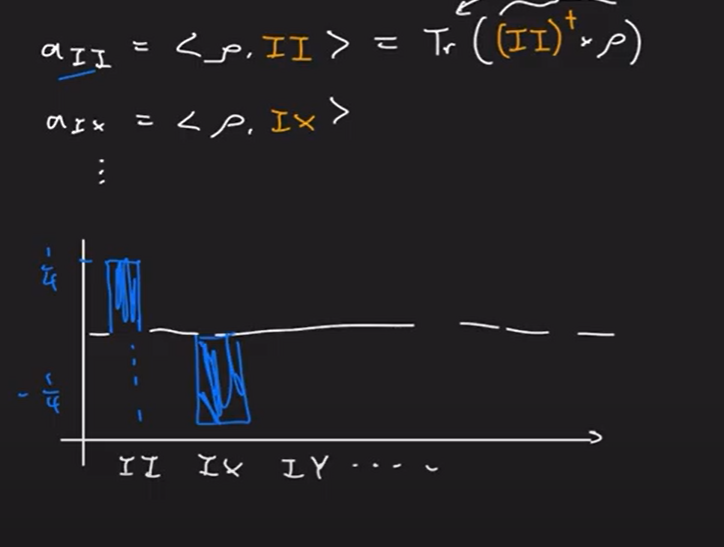 a_II = <ρ, II> = Tr((II)† × ρ)
a_Ix = <ρ, Ix>
⋮
1/4
- 1/4
II Ix IY .....